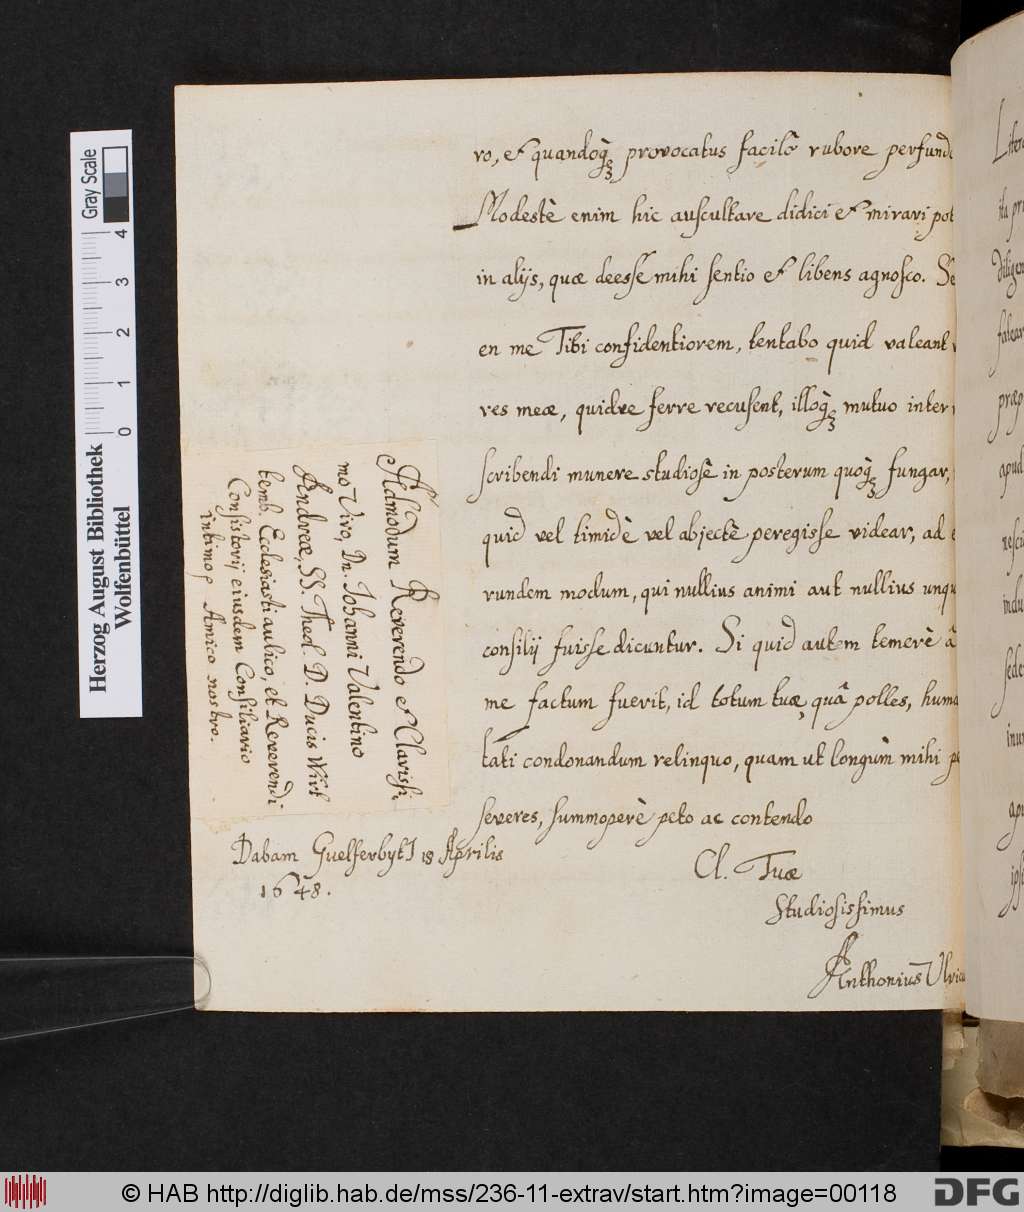 ro, et quandoq; provocatus facilè rubore perfund
Modestè enim hic auscultare didici et mirari pot
in alijs, quæ deesse mihi sentio et libens agnosco. Se
en me Tibi confidentiorem, tentabo quid valeant
res meæ, quidve ferre recusent, illoq; mutuo inter
scribendi munere studiosè in posterum quoq; fungar,
quid vel timidè vel abjectè peregisse videar, ad e
rundem modum, qui nullius animi aut nullius unqu
consilij fuisse dicuntur. Si quid autem temerè â
me factum fuerit, id totum tuæ, quâ polles, huma
tati condonandum relinquo, quam ut longùm mihi pe
severes, summoperè peto ac contendo
Cl. Tuæ
Studiosissimus
Anthonius Ulric
Dabam Guelferbyti 18 Aprilis
1648.
Admodum Reverendo et Clarissi
mo Viro, Dn. Iohanni Valentino
Andreæ, SS. Theol. D. Ducis Wirt
temb. Ecclesiasti aulico, et Reverendi
Consistorij eiusdem Consiliario
intimo, Amico nostro.
Litera
ita pr
diligen
falear
præp
apud
nesci
indu
sede
inu
apu
ipse
Herzog August Bibliothek
Wolfenbüttel
Gray Scale
0 1 2 3 4
© HAB http://diglib.hab.de/mss/236-11-extrav/start.htm?image=00118
DFG